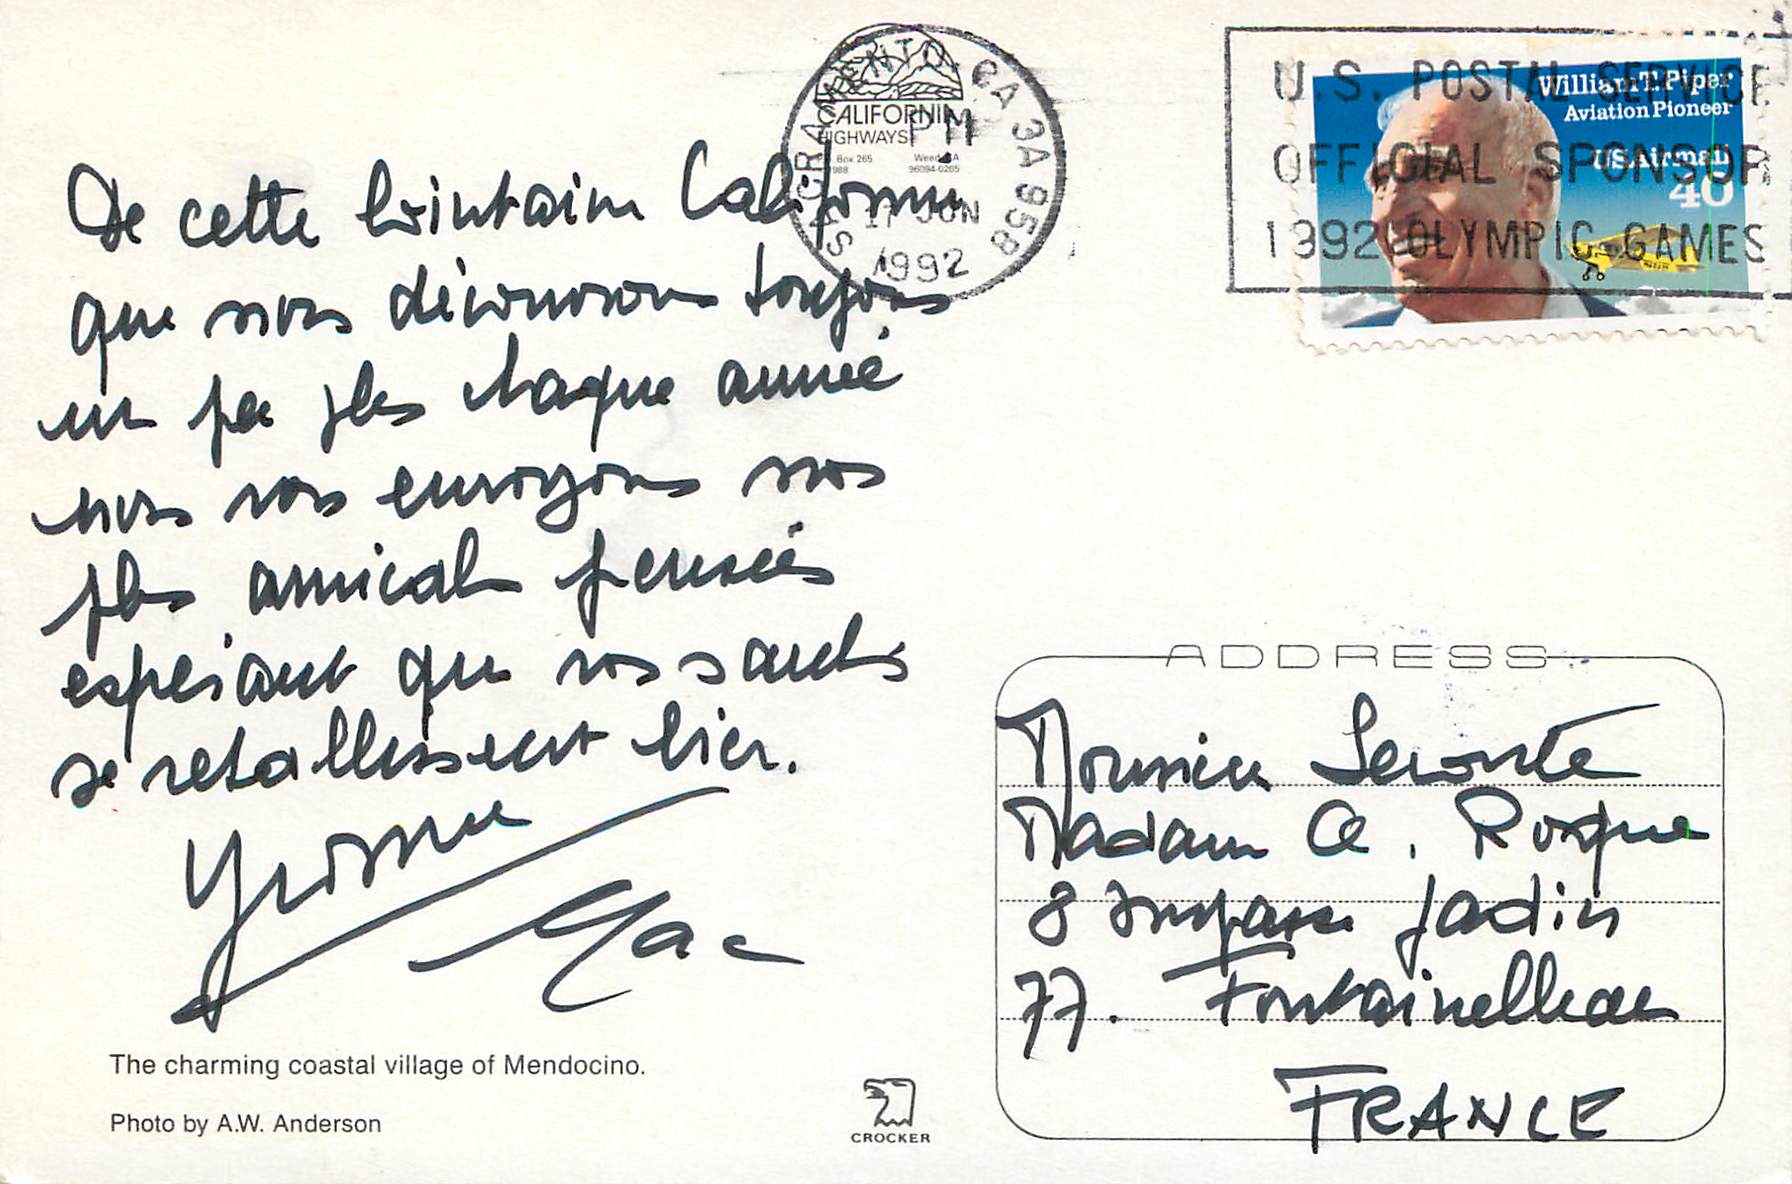 CALIFORNIA
HIGHWAYS
Box 265 Weed, CA
1988 96094-0265
SACRAMENTO, CA 3A 958
PM
17 JUN
1992
U.S. POSTAL SERVICE
OFFICIAL SPONSOR
1992 OLYMPIC GAMES
William T. Piper
Aviation Pioneer
USAirmail
40
De cette lointaine Californie
que nous découvrons toujours
un peu plus chaque année
nous vous envoyons nos
plus amicales pensées
espérant que vos santés
se rétablissent bien.
Yvonne
Mac
The charming coastal village of Mendocino.
Photo by A.W. Anderson
CROCKER
ADDRESS
Monsieur Leconte
Madame A. Roque
8 Impasse Jadin
77. Fontainebleau
FRANCE